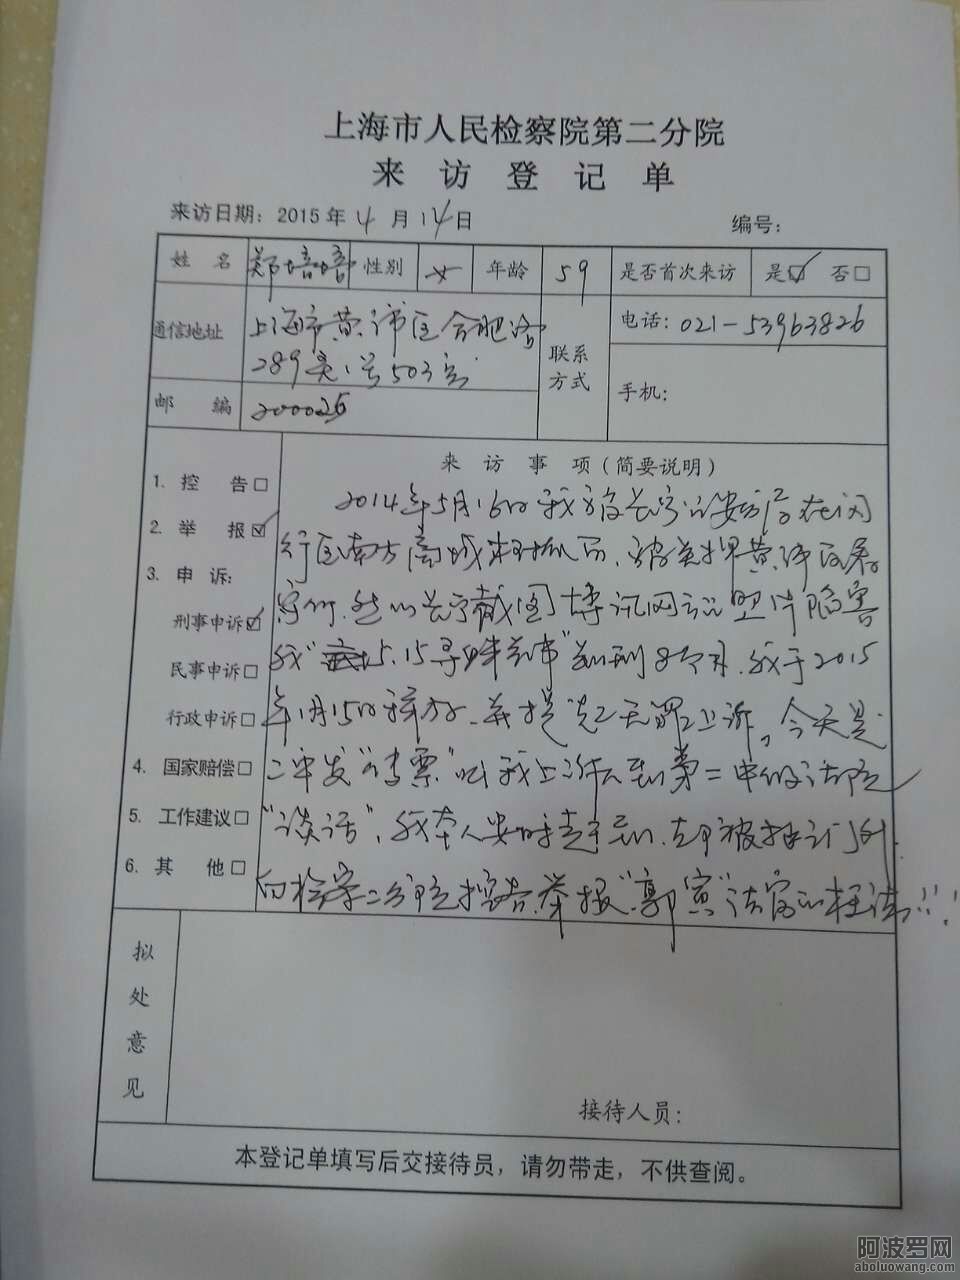 上海市人民检察院第二分院
来访登记单
来访日期：2015年4月14日 编号：
姓名 郑培培 性别 女 年龄 59 是否首次来访 是☑ 否□
通信地址 上海市黄浦区合肥路
289弄1号503室
联系方式 电话：021-53963826
手机：
邮编 200025
来访事项（简要说明）
1. 控告□
2. 举报☑
3. 申诉：
刑事申诉☑
民事申诉□
行政申诉□
4. 国家赔偿□
5. 工作建议□
6. 其他□
2014年5月16日我被长宁公安分局在闵
行区南方商城 被关押黄浦区看
守所 截图博讯网 照片陷害
我"5.15寻 "判刑8个月，我于2015
年1月15日释放，并提 无罪上诉，今天是
二审发"传票"叫我上 到第二中级法院
"谈话"，我本人 被拒之门外
向检察二分院控告、举报"郭寅"法官的枉法！！！
拟处意见
接待人员：
本登记单填写后交接待员，请勿带走，不供查阅。
阿波罗网
aboluowang.com